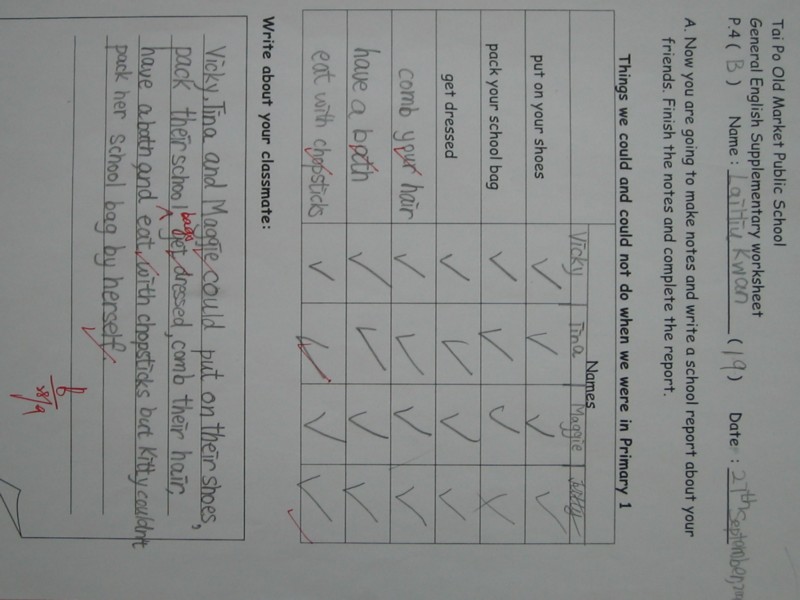 Tai Po Old Market Public School
General English Supplementary worksheet
P.4 ( B ) Name : Lai Hiu Kwan ( 19 ) Date : 27th September,
A. Now you are going to make notes and write a school report about your
friends. Finish the notes and complete the report.
Things we could and could not do when we were in Primary 1
Names
Vicky Tina Maggie
put on your shoes ✓ ✓ ✓ ✓
pack your school bag ✓ ✓ ✓ ✗
get dressed ✓ ✓ ✓ ✓
comb your hair ✓ ✓ ✓ ✓
have a bath ✓ ✓ ✓ ✓
eat with chopsticks ✓ ✓ ✓ ✓
Write about your classmate:
Vicky, Tina and Maggie could put on their shoes,
pack their school bags get dressed, comb their hair,
have a bath and eat with chopsticks but Kitty couldn't
pack her school bag by herself.
28/9